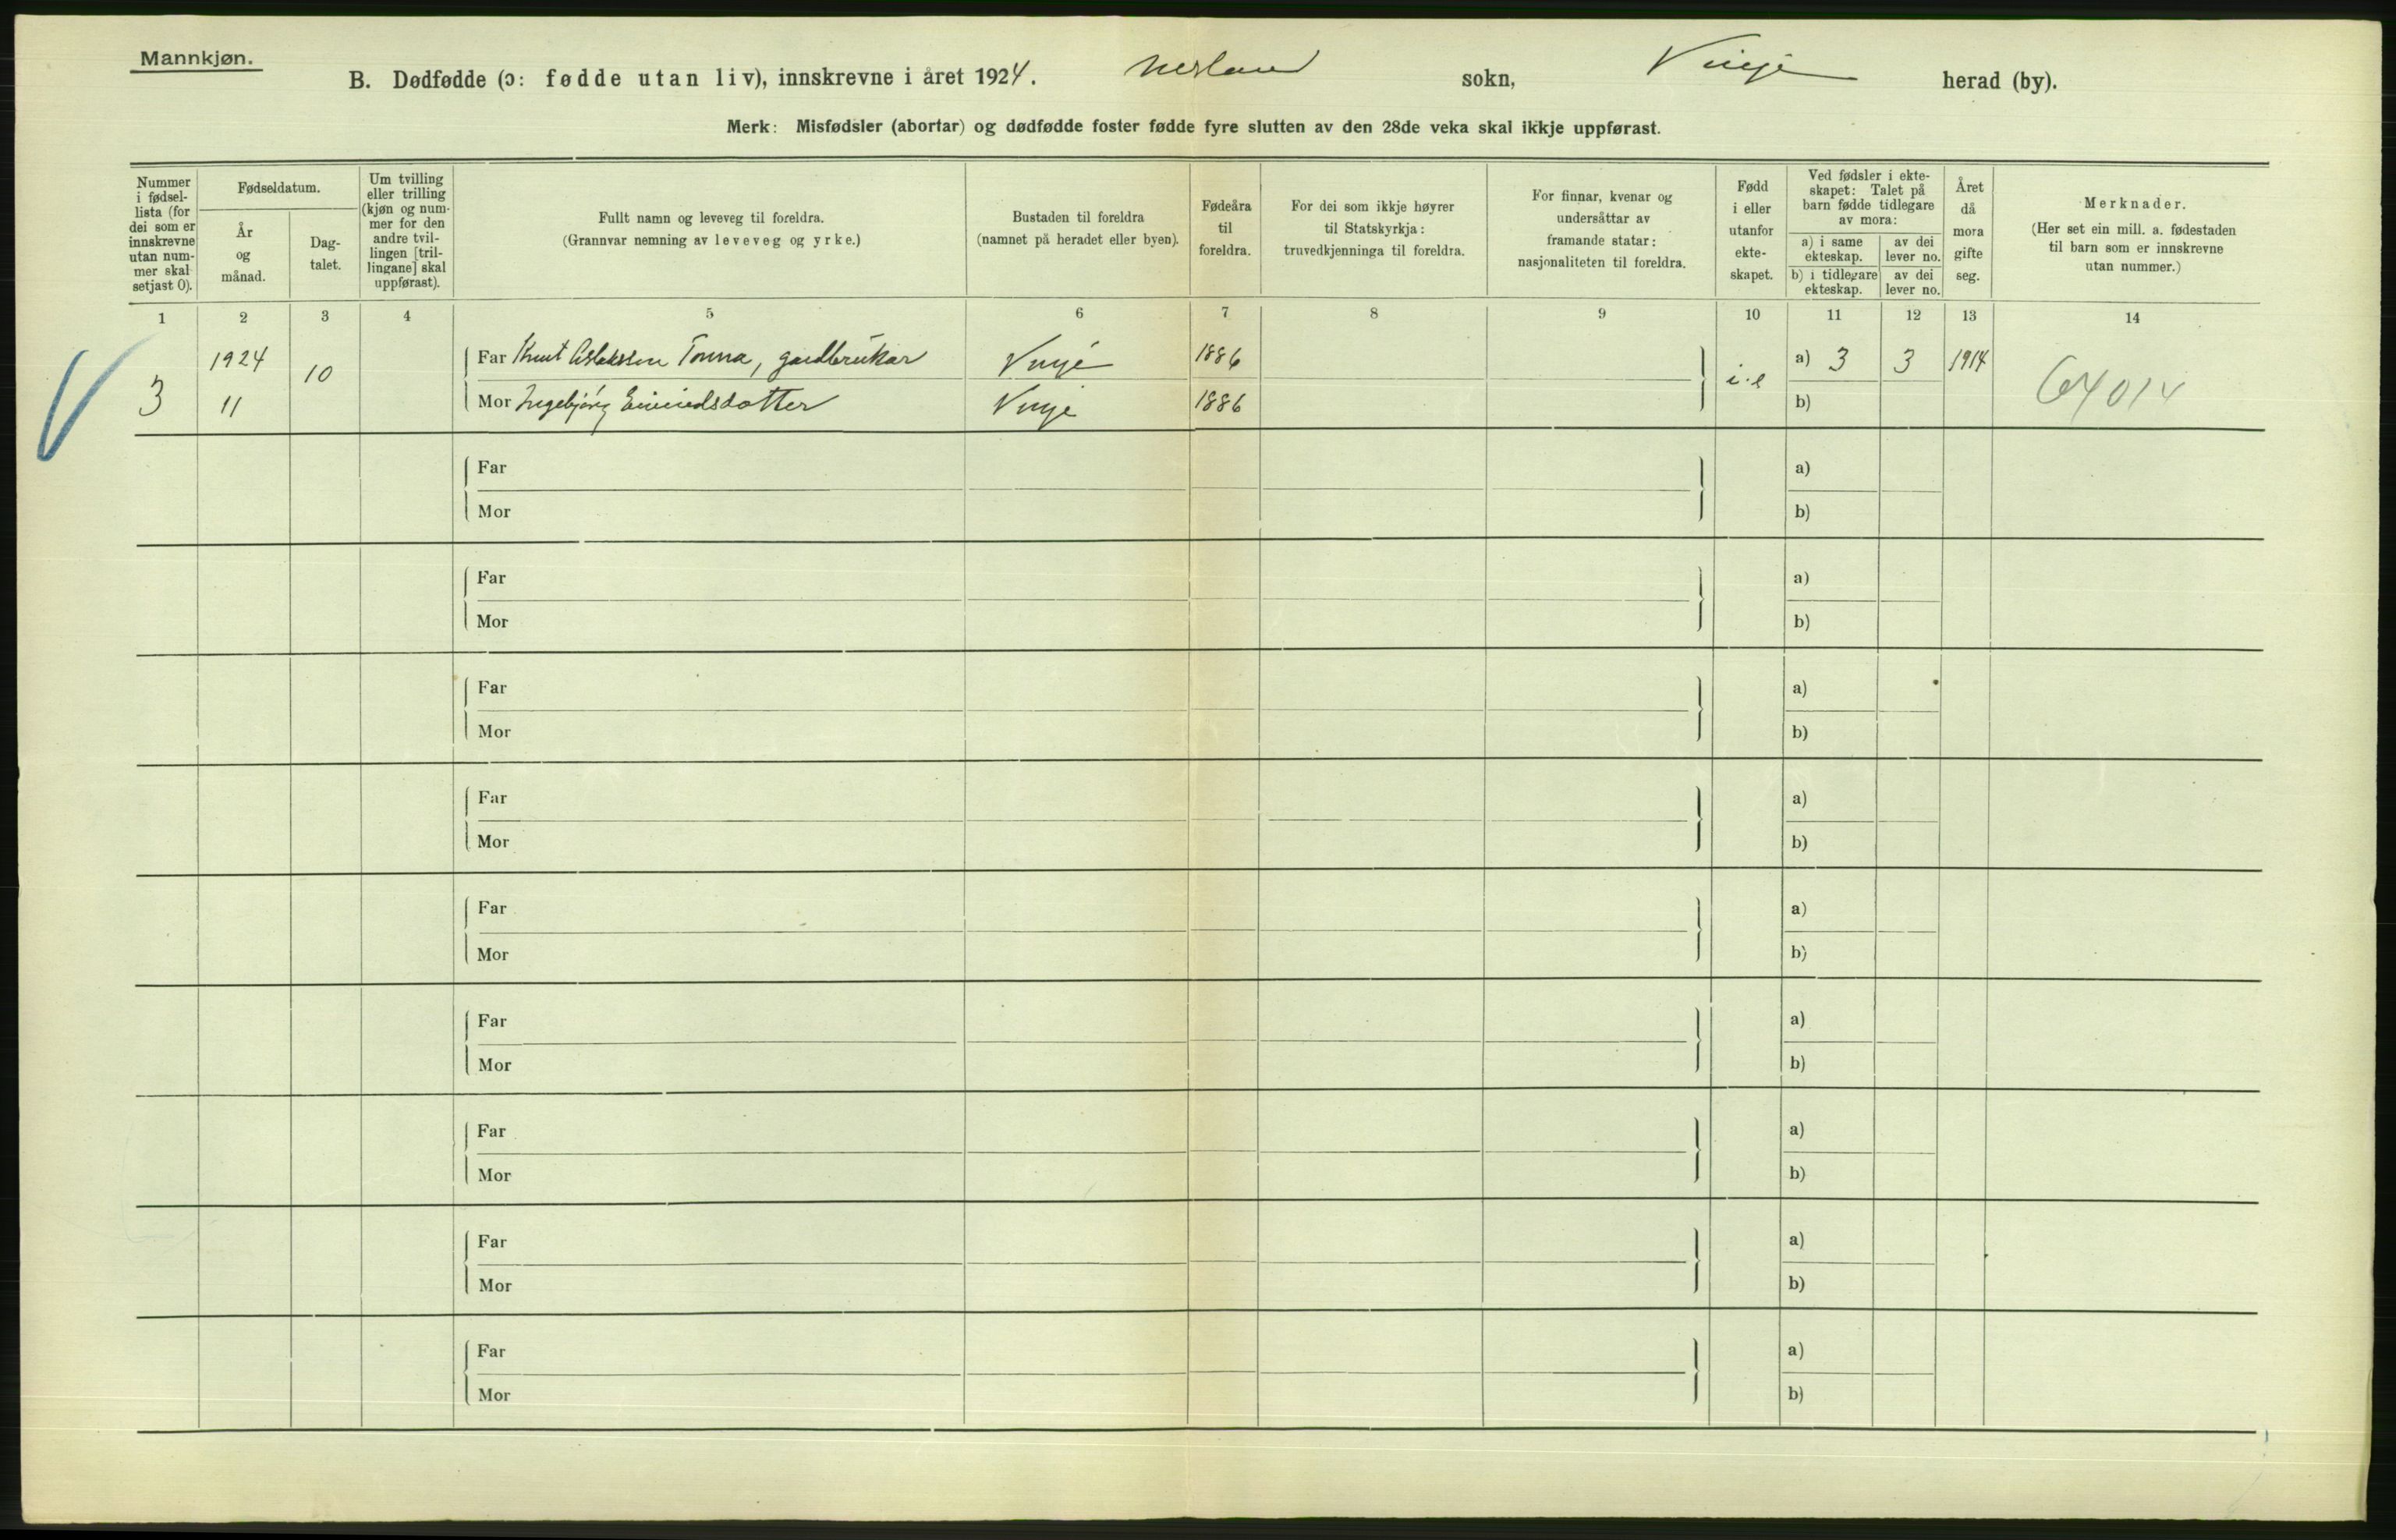 Mannkjøn.
B. Dødfødde (ɔ: fødde utan liv), innskrevne i året 1924. Nesland sokn, Vinje herad (by).
Merk: Misfødsler (abortar) og dødfødde foster fødde fyre slutten av den 28de veka skal ikkje uppførast.
Nummer i fødsel-lista (for dei som er innskrevne utan num-mer skal setjast 0).
Fødseldatum.
År og månad.
Dag-talet.
Um tvilling eller trilling (kjøn og num-mer for den andre tvil-lingen [tril-lingane] skal uppførast).
Fullt namn og leveveg til foreldra.
(Grannvar nemning av leveveg og yrke.)
Bustaden til foreldra
(namnet på heradet eller byen).
Fødeåra til foreldra.
For dei som ikkje høyrer til Statskyrkja: truvedkjenninga til foreldra.
For finnar, kvenar og undersåttar av framande statar: nasjonaliteten til foreldra.
Fødd i eller utanfor ekte-skapet.
Ved fødsler i ekte-skapet: Talet på barn fødde tidlegare av mora:
a) i same ekteskap.
av dei lever no.
b) i tidlegare ekteskap.
av dei lever no.
Året då mora gifte seg.
Merknader.
(Her set ein mill. a. fødestaden til barn som er innskrevne utan nummer.)
1 2 3 4 5 6 7 8 9 10 11 12 13 14
3 1924 10 Far Knut Aslaksson Tonna, gardbrukar Vinje 1886 i.e a) 3 3 1914 64014
11 Mor Ingebjørg Eivindsdotter Vinje 1886 b)
Far a)
Mor b)
Far a)
Mor b)
Far a)
Mor b)
Far a)
Mor b)
Far a)
Mor b)
Far a)
Mor b)
Far a)
Mor b)
Far a)
Mor b)
Far a)
Mor b)